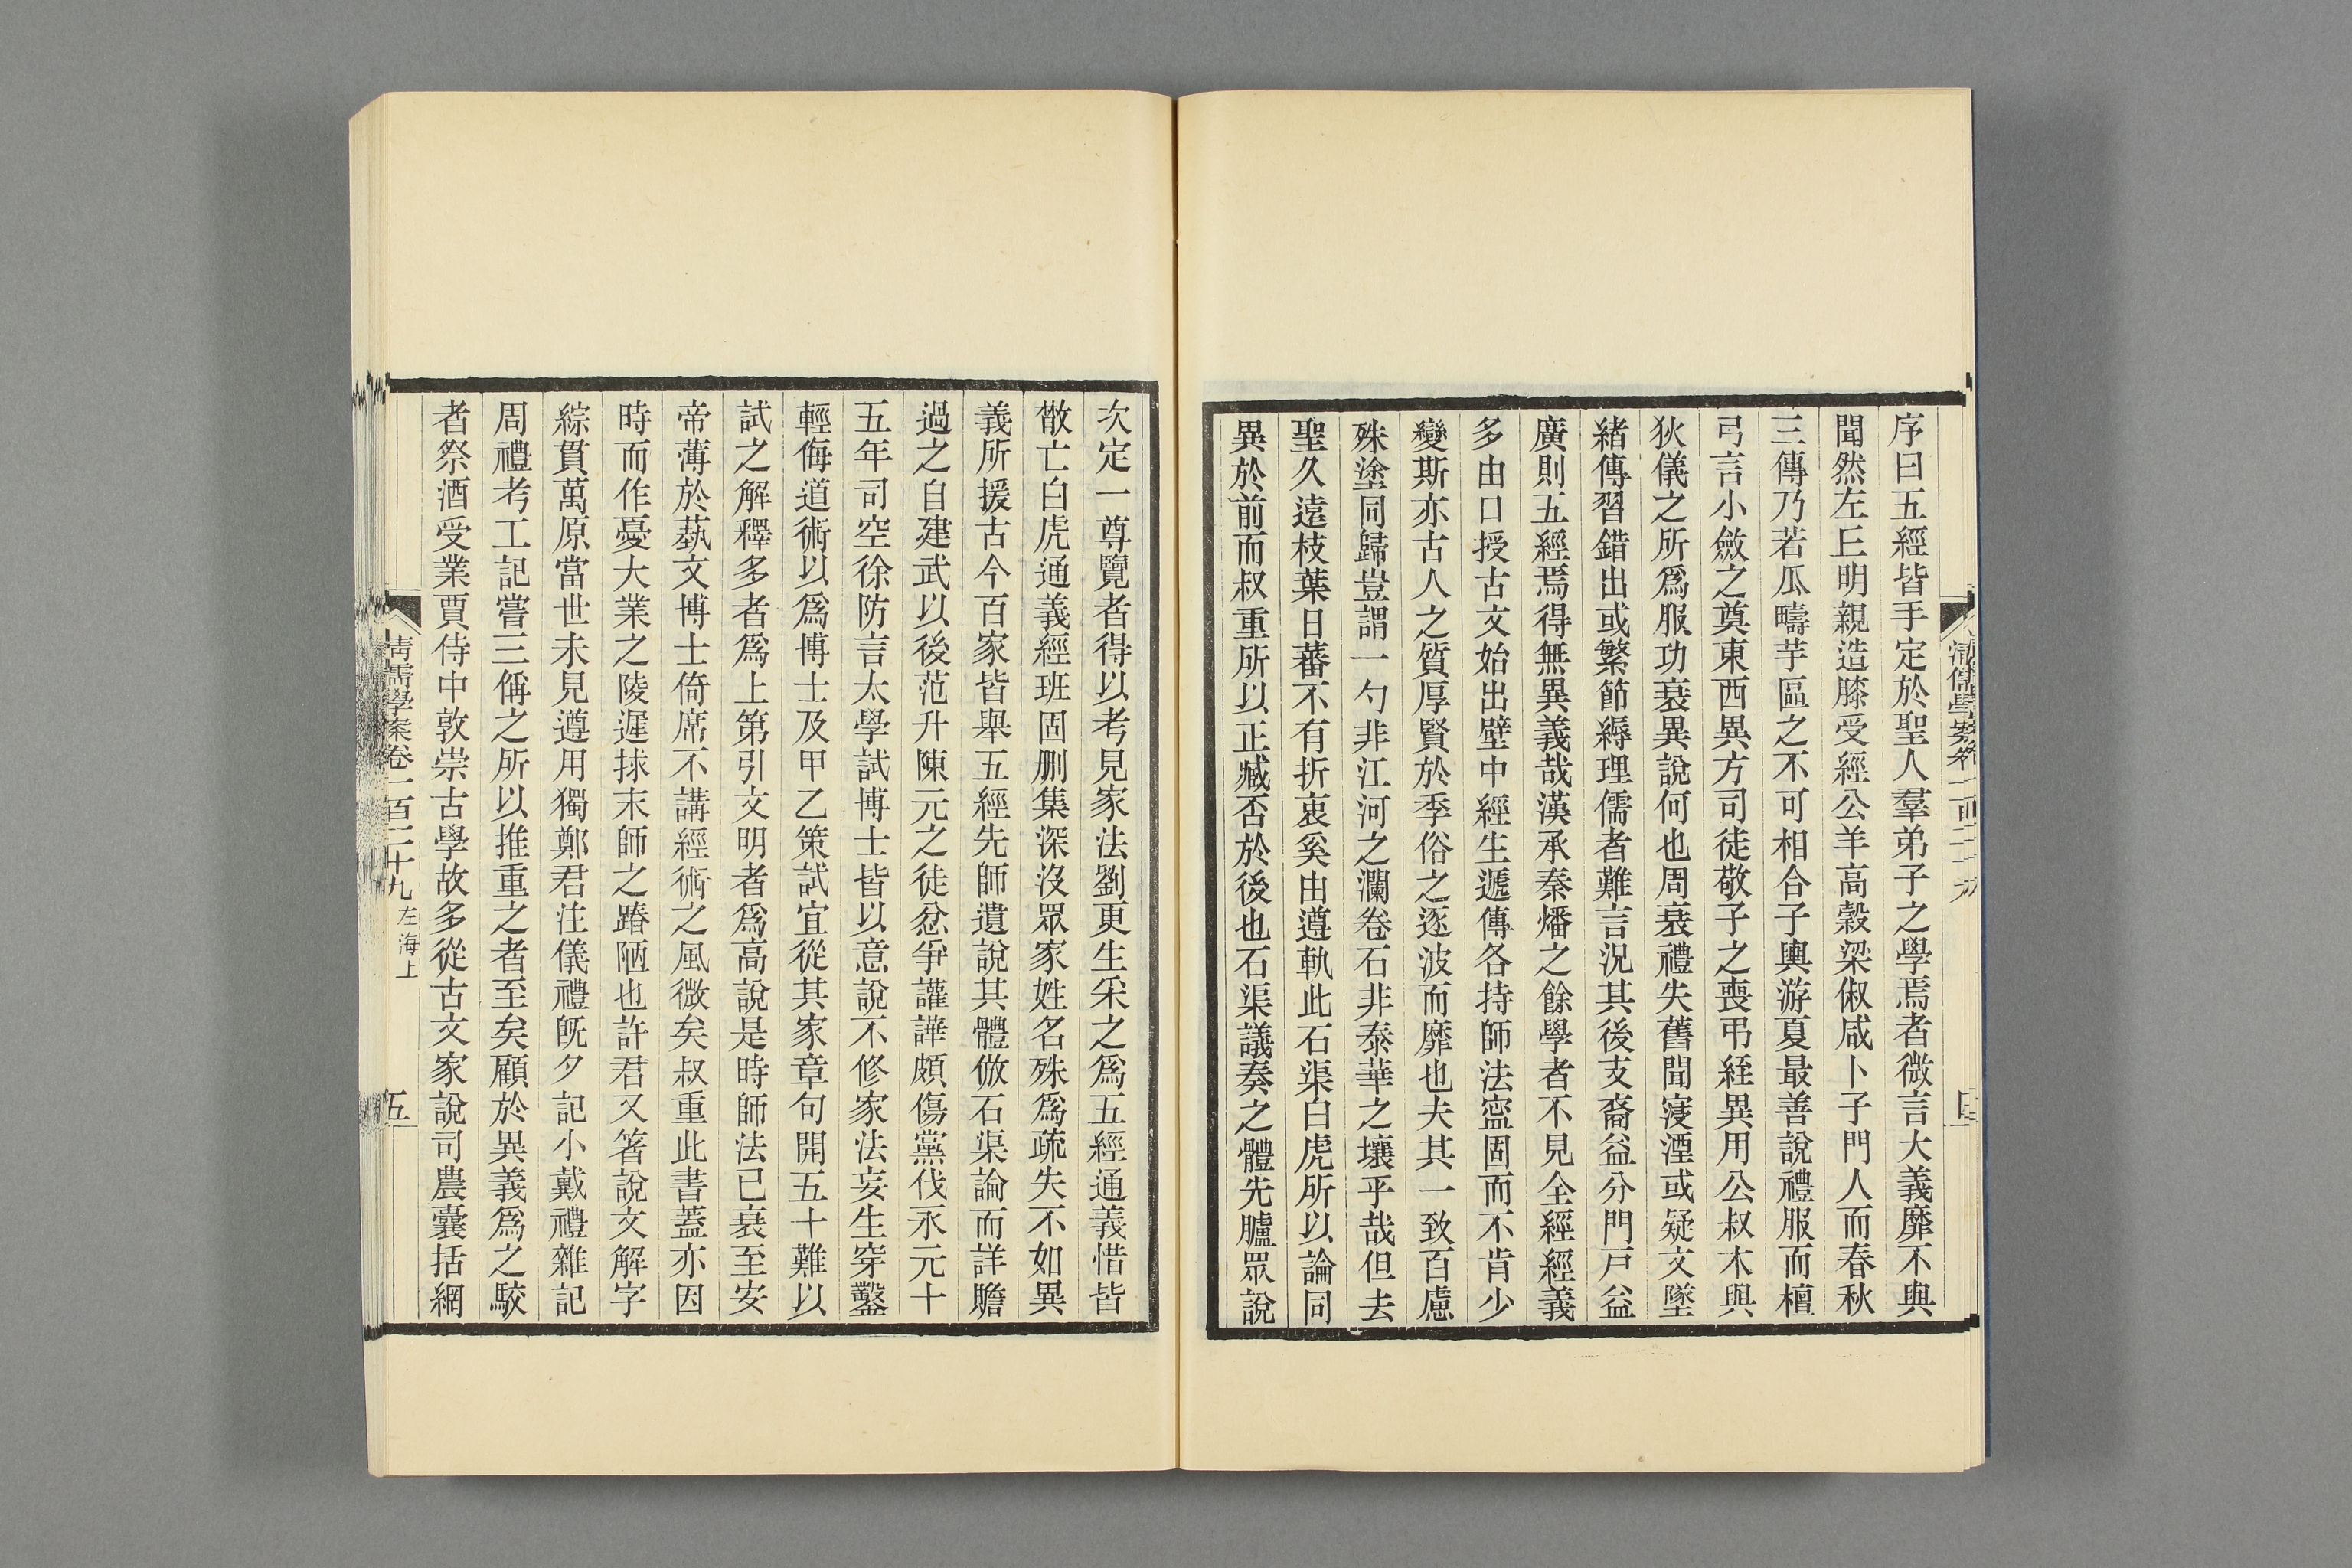 序曰五經皆手定於聖人羣弟子之學焉者微言大義靡不與
聞然左丘明親造膝受經公羊高穀梁俶咸卜子門人而春秋
三傳乃若瓜疇芋區之不可相合子輿游夏最善說禮服而檀
弓言小斂之奠東西異方司徒敬子之喪弔絰異用公叔木與
狄儀之所爲服功衰異說何也周衰禮失舊聞寖湮或疑文墜
緒傳習錯出或繁節縟理儒者難言況其後支裔益分門戸益
廣則五經焉得無異義哉漢承秦燔之餘學者不見全經經義
多由口授古文始出壁中經生遞傳各持師法寍固而不肯少
變斯亦古人之質厚賢於季俗之逐波而靡也夫其一致百慮
殊塗同歸豈謂一勺非江河之瀾卷石非泰華之壤乎哉但去
聖久遠枝葉日蕃不有折衷奚由遵軌此石渠白虎所以論同
異於前而叔重所以正臧否於後也石渠議奏之體先臚眾說
次定一尊覽者得以考見家法劉更生采之爲五經通義惜皆
㪚亡白虎通義經班固刪集深沒眾家姓名殊爲疏失不如異
義所援古今百家皆舉五經先師遺說其體倣石渠論而詳贍
過之自建武以後范升陳元之徒忿爭讙譁頗傷黨伐永元十
五年司空徐防言太學試博士皆以意說不修家法妄生穿鑿
輕侮道術以爲博士及甲乙策試宜從其家章句開五十難以
試之解釋多者爲上第引文明者爲高說是時師法已衰至安
帝薄於蓺文博士倚席不講經術之風微矣叔重此書蓋亦因
時而作憂大業之陵遲捄末師之踳陋也許君又箸說文解字
綜貫萬原當世未見遵用獨鄭君注儀禮旣夕記小戴禮雜記
周禮考工記嘗三稱之所以推重之者至矣顧於異義爲之駮
者祭酒受業賈侍中敦崇古學故多從古文家說司農囊括網
清儒學案卷一百二十九 左海上
五